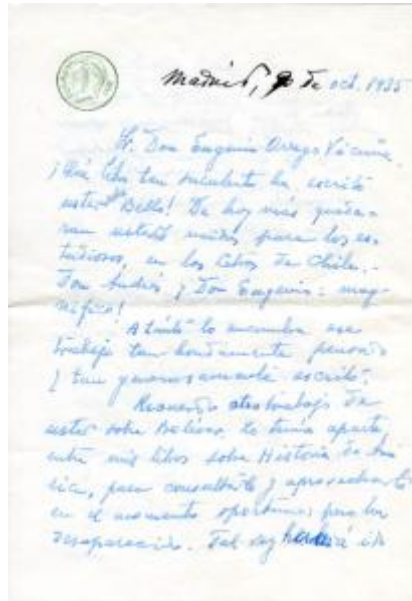 Madrid, 9 de oct. 1935
Sr. Don Eugenio Orrego Vicuña
¡Qué libro tan suculento ha escrito
usted Bello! De hoy más queda-
ran ustedes unidos para los es-
tudiosos, en los libros de Chile.
Don Andrés y Don Eugenio: mag-
nífico!
A tanto lo encumbra ese
trabajo tan hondamente pensado
y tan generosamente escrito.
Recuerdo otro trabajo de
usted sobre Bolívar. Lo tenía aparte,
entre mis libros sobre Historia de Amé
rica, para consultarlo y aprovecharlo
en el momento oportuno; pero ha
desaparecido. Tal vez habrá ido